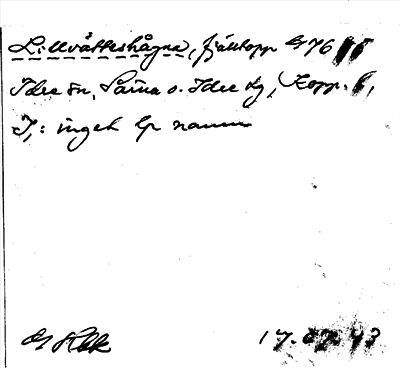 Lillvätteshågna, fjälltopp 976
Idre sn, Särna o. Idre tg, Kopp. l,
I,: inget lp namn
17.07.43